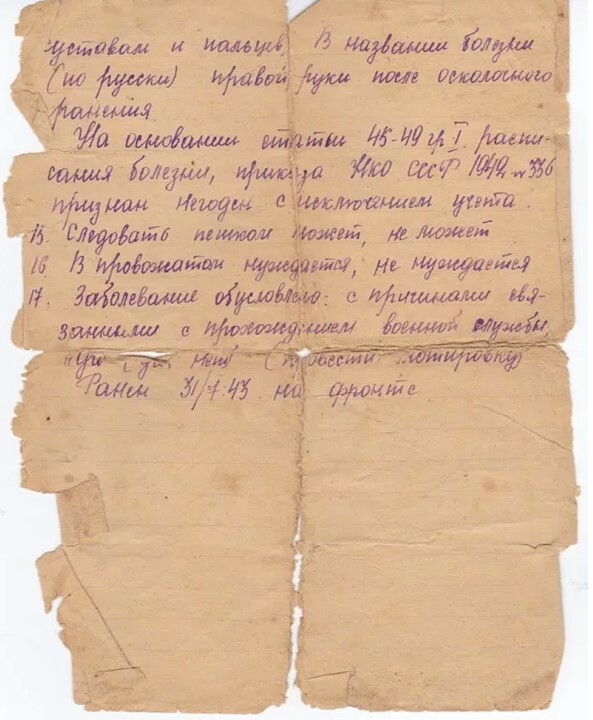 уставам и пальцев В названии болезни
(по русски) правой руки после осколочного
ранения.
На основании статьи 45-49 гр I распи-
сания болезни, приказа НКО СССР 1942 № 336
признан негоден с исключением учета.
15. Следовать пешком может, не может
16. В провожатом нуждается, не нуждается
17. Заболевание обусловлено: с причинами свя-
занными с прохождением военной службы,
нет (
Ранен 31/7.43 на фронте